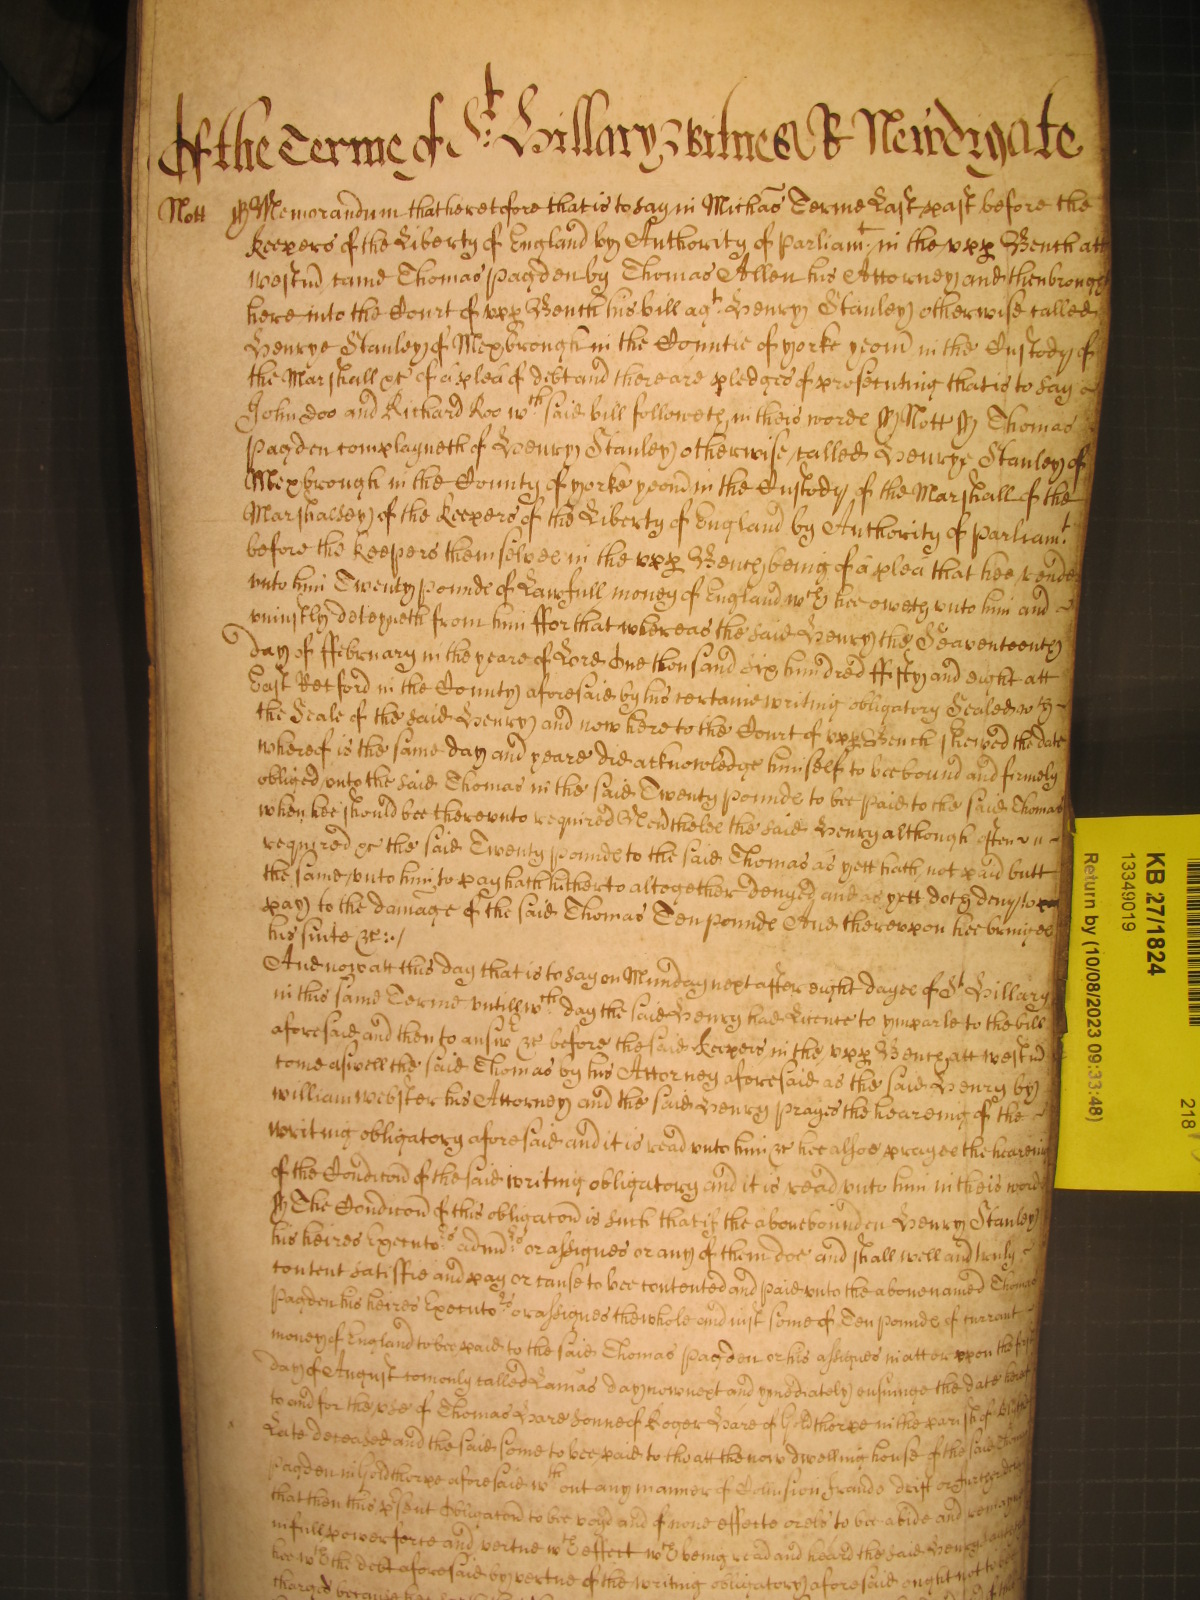 Of the Terme of St: Hillary Witnes R Newdigate
Nott ss Memorandum that heretofore that is to say in Michas Terme Last past before the
Keepers of the Liberty of England by Authority of Parliamt in the upp Bench att
Westmr came Thomas Pagden by Thomas Allen his Attorney and then brought
here into the Court of upp Bench his bill agt Henry Stanley otherwise called
Henrye Stanley of Mexbrough in the Countie of yorke yeom in the Custody of
the Marshall &c of a plea of debt and there are pledges of prosecuting that is to say
John Doo and Richard Roo wth said bill followeth in theis wordes ss Nott ss Thomas
Pagden complayneth of Henry Stanley otherwise called Henrye Stanley of
Mexbrough in the County of yorke yeom in the Custody of the Marshall of the
Marshalsey of the Keepers of the Liberty of England by Authority of Parliamt
before the Keepers themselves in the upp Bench being of a plea that hee render
unto him Twenty pounds of Lawfull money of England wch hee oweth unto him and
uniustly deteyneth from him ffor that whereas the said Henry the Seaventeenth
day of ffebruary in the yeare of Lord One thousand six hundred ffifty and eight att
East Retford in the County aforesaid by his certaine writing obligatory Sealed wth
the Seale of the said Henry and now here to the Court of upp Bench shewed the date
whereof is the same day and yeare did acknowledge himself to bee bound and firmely
obliged unto the said Thomas in the said Twenty pounds to bee paid to the said Thomas
when hee should bee thereunto required Nevtheles the said Henry although often
required &c the said Twenty pounds to the said Thomas as yett hath not paid butt
the same unto him to pay hath hitherto altogether denyed and as yett doth deny to
pay to the damage of the said Thomas Ten pounds And thereupon hee bringes
his suite &c:
And now att this day that is to say on Munday next after eight dayes of St Hillary
in this same Terme untill wch day the said Henry had Licence to ymparle to the bill
aforesaid and then to answr &c before the said Keepers in the upp Bench att Westmr
come aswell the said Thomas by his Attorney aforesaid as the said Henry by
William Webster his Attorney and the said Henry prayes the heareing of the
writing obligatory aforesaid and it is read unto him &c hee alsoe prayes the heareing
of the Condicon of the said writing obligatory and it is read unto him in theis words
ss The Condicon of this obligacon is such that if the abovebounden Henry Stanley
his heires Executors admrs or assignes or any of them doe and shall well and truly
content satisfie and pay or cause to bee contented and paid unto the abovenamed Thomas
Pagden his heires Executors or assignes the whole and iust some of Ten pounds of currant
money of England to bee paid to the said Thomas Pagden or his assignes in att or uppon the first
day of August comonly called Lamas day now next and ymediately ensuinge the date hereof
to and for the use of Thomas Hare sonne of Roger Hare of Goldthorpe in the parish of
Late deceased and the said some to bee paid to th att the now dwelling house of the said Thomas
Pagden in Goldthorpe aforesaid wthout any manner of Colusion fraude drift or further delay
that then this psent Obligacon to bee voyd and of none effecte or els to bee abide and remayne
in full power force and vertue wth effect wch being read and heard the said Henry
hee wth the debt aforesaid by vertue of the writing obligatory aforesaid ought not to bee
charged because hee
KB 27/1824
13349019
Return by (10/08/2023 09:33:48)
218